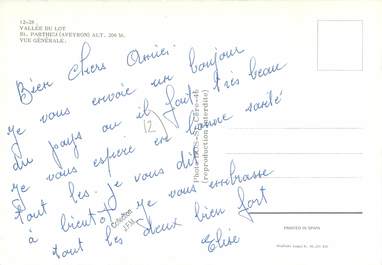 12-28
VALLÉE DU LOT
St. PARTHEM (AVEYRON) ALT. 206 M.
VUE GÉNÉRALE.
Bien Chers Amies.
Je vous envoie un bonjour
du pays ou il fait très beau
Je vous espère en bonne santé
tout les. je vous dit
à bientot je vous embrasse
tout les deux bien fort
Elise
12
Collection
Photo
(reproduction interdite)
PRINTED IN SPAIN